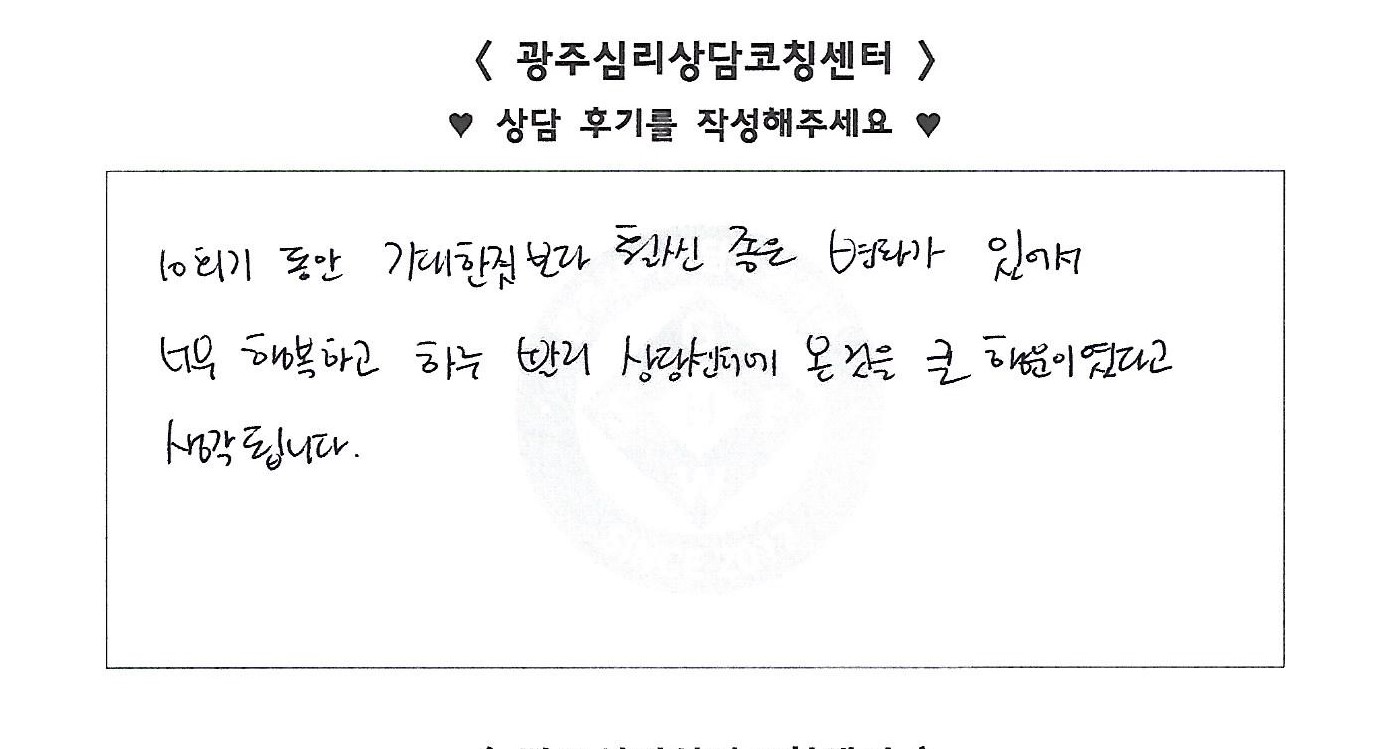 < 광주심리상담코칭센터 >
♥ 상담 후기를 작성해주세요 ♥
10회기 동안 기대한것보다 훨씬 좋은 변화가 있어서
너무 행복하고 하루 빨리 상담센터에 온것을 큰 행운이였다고
생각됩니다.